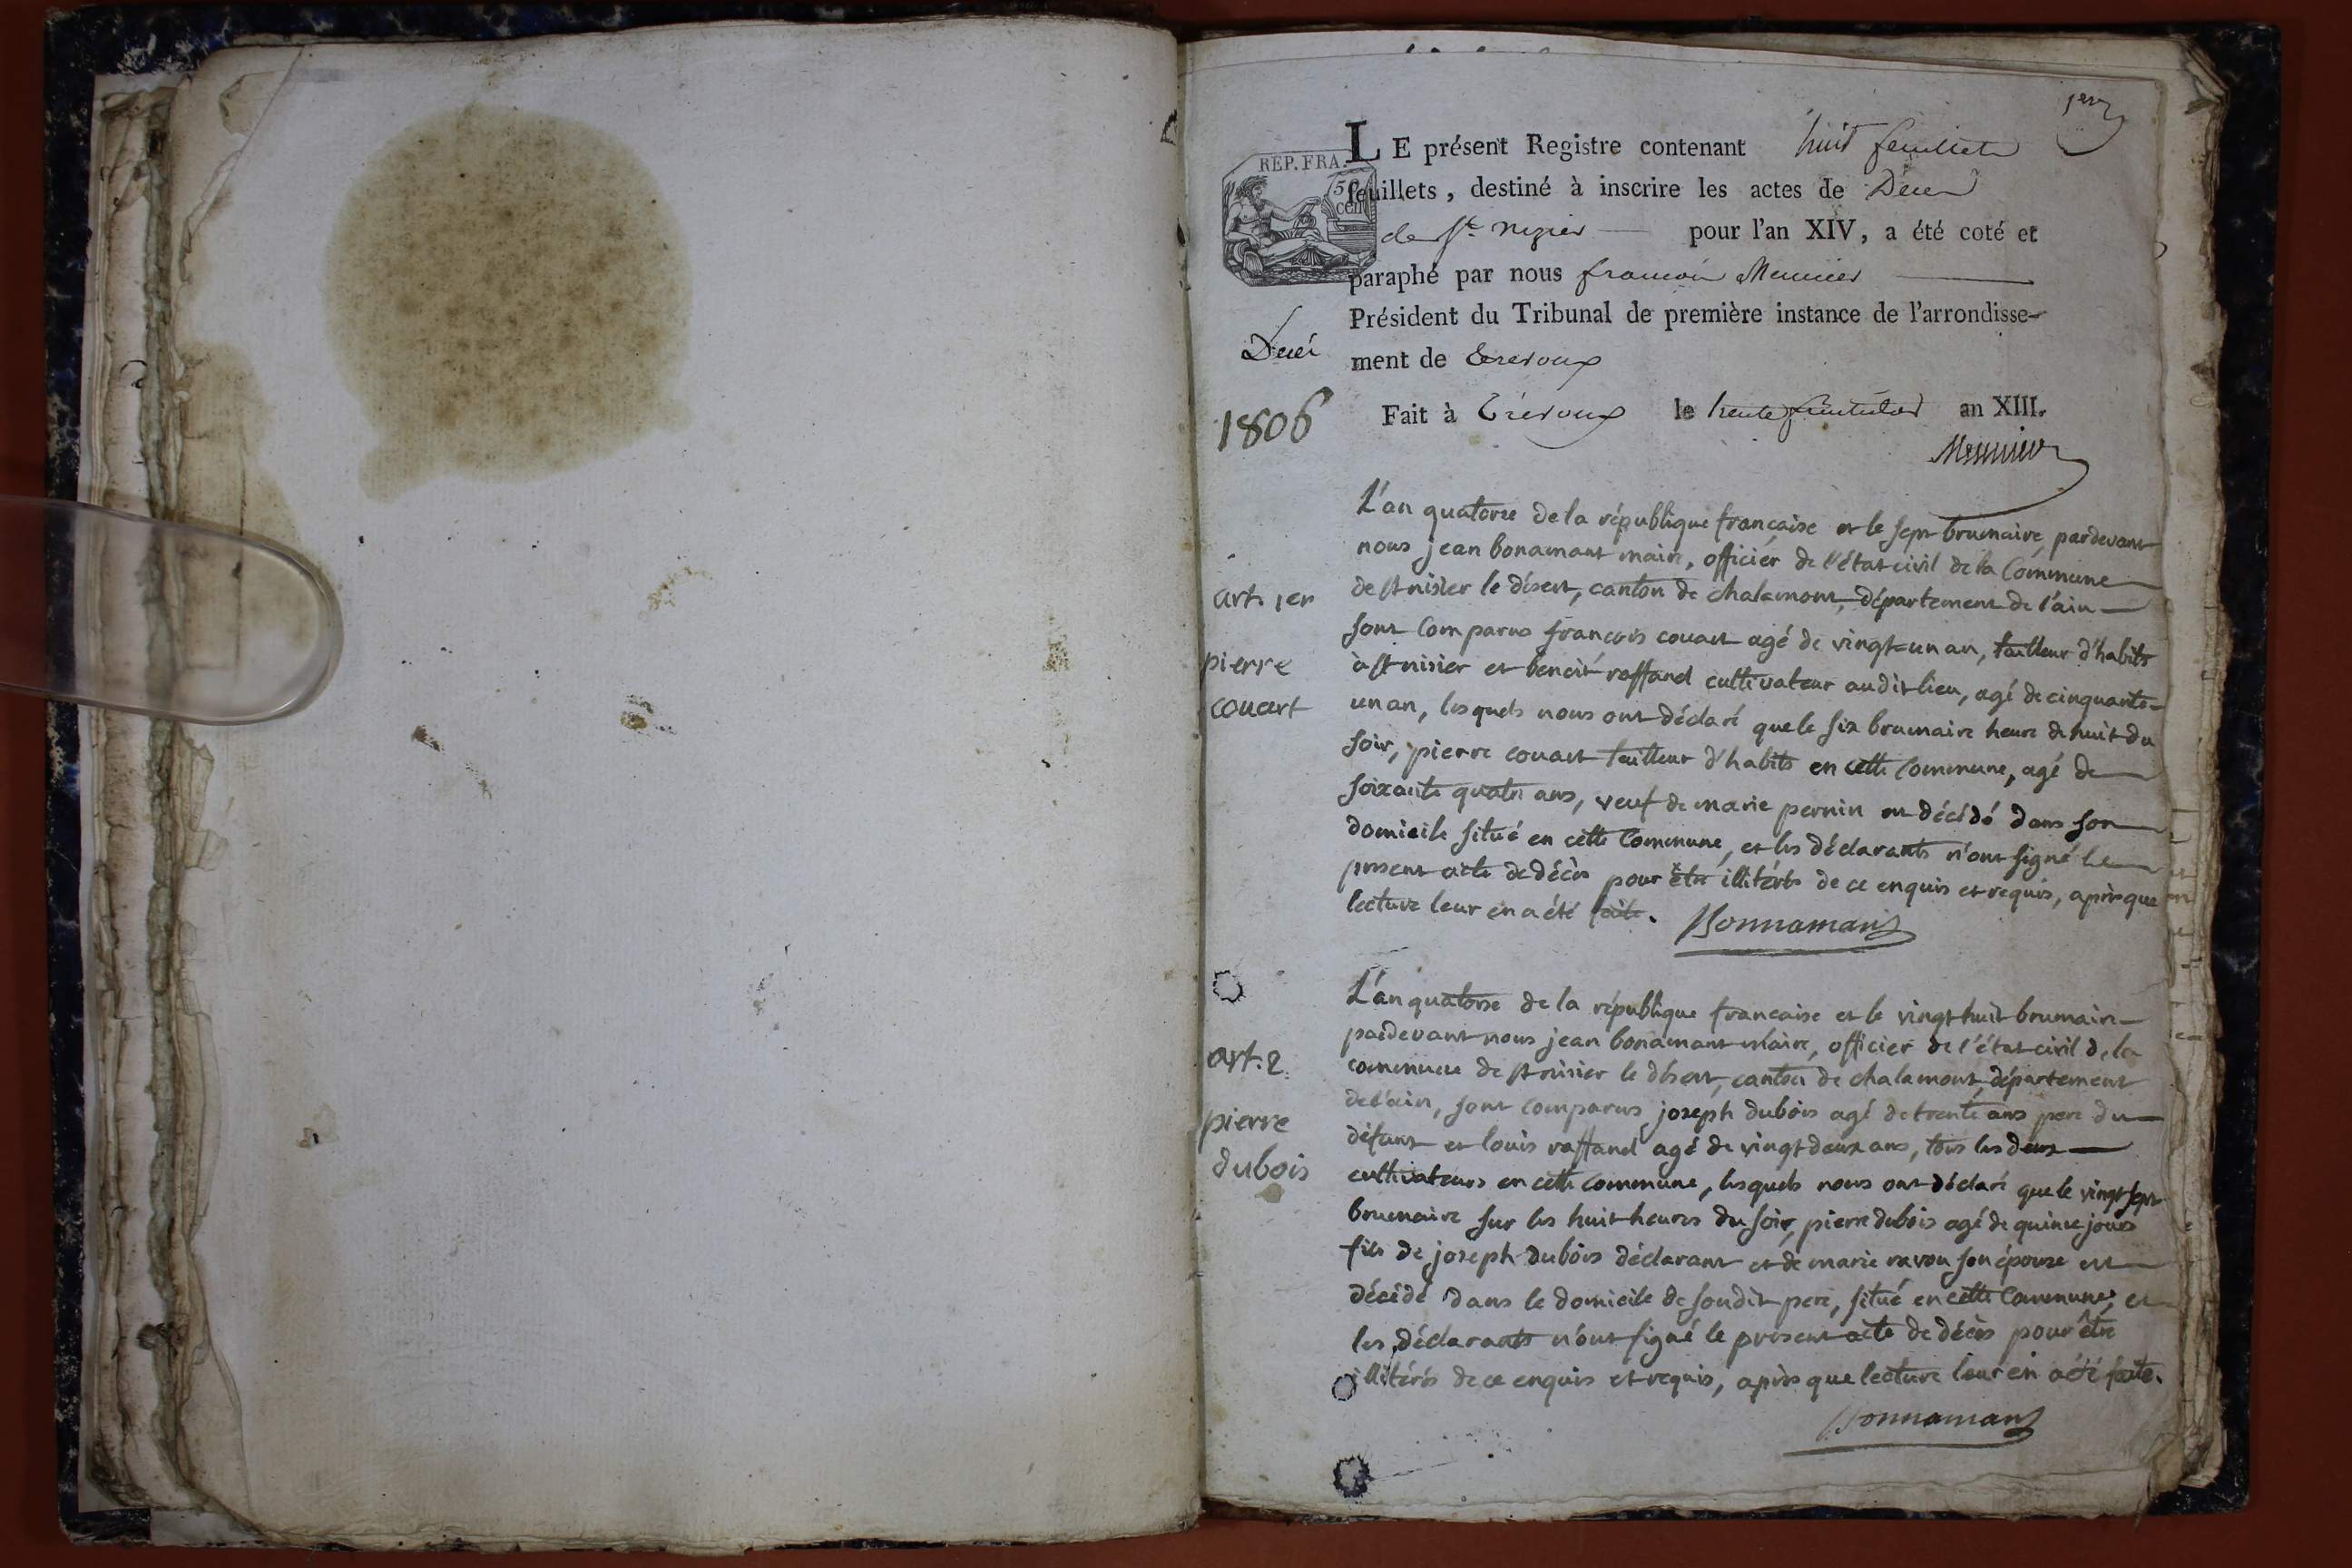 1er
REP. FRA.
50
cen
LE présent Registre contenant huit feuillets
feuillets, destiné à inscrire les actes de Décès
de St. nizier pour l'an XIV, a été coté et
paraphé par nous françois Meunier
Président du Tribunal de première instance de l'arrondisse-
ment de Trevoux
Décès
1806
Fait à Trévoux le trente fructidor an XIII.
Meunier
art. 1er
pierre
couart
L'an quatorze de la république française et le sept brumaire, pardevant
nous jean bonamant maire, officier de l'état civil de la Commune
de st nisier le désert, canton de chalamont, département de l'ain
sont Comparus françois couart agé de vingt-un an, tailleur d'habits
à st nisier et benoit raffand cultivateur audit lieu, agé de cinquante-
un an, lesquels nous ont déclaré que le six brumaire heure de huit du
soir, pierre couart tailleur d'habits en cette Commune, agé de
soixante quatre ans, veuf de marie pernin est décédé dans son
domicile situé en cette Commune, et les déclarants n'ont signé le
present acte de décès pour être illitérés de ce enquis et requis, après que
lecture leur en a été faite. Bonnamant
art. 2
pierre
dubois
L'an quatorse de la république francaise et le vingt huit brumaire
pardevant nous jean bonamant maire, officier de l'état civil de la
commune de st nisier le désert, canton de chalamont, département
de l'ain, sont comparus joseph dubois agé de trente ans pere du
défunt et louis raffand agé de vingt deux ans, tous les deux
cultivateurs en cette commune, lesquels nous ont déclaré que le vingt sept
brumaire sur les huit heures du soir, pierre dubois agé de quinze jours
fils de joseph dubois déclarant et de marie ravou son épouse est
décédé dans le domicile de soudit pere, situé en cette Commune, et
les déclarants n'ont signé le présent acte de décès pour être
illitérés de ce enquis et requis, après que lecture leur en a été faite.
Bonnamant